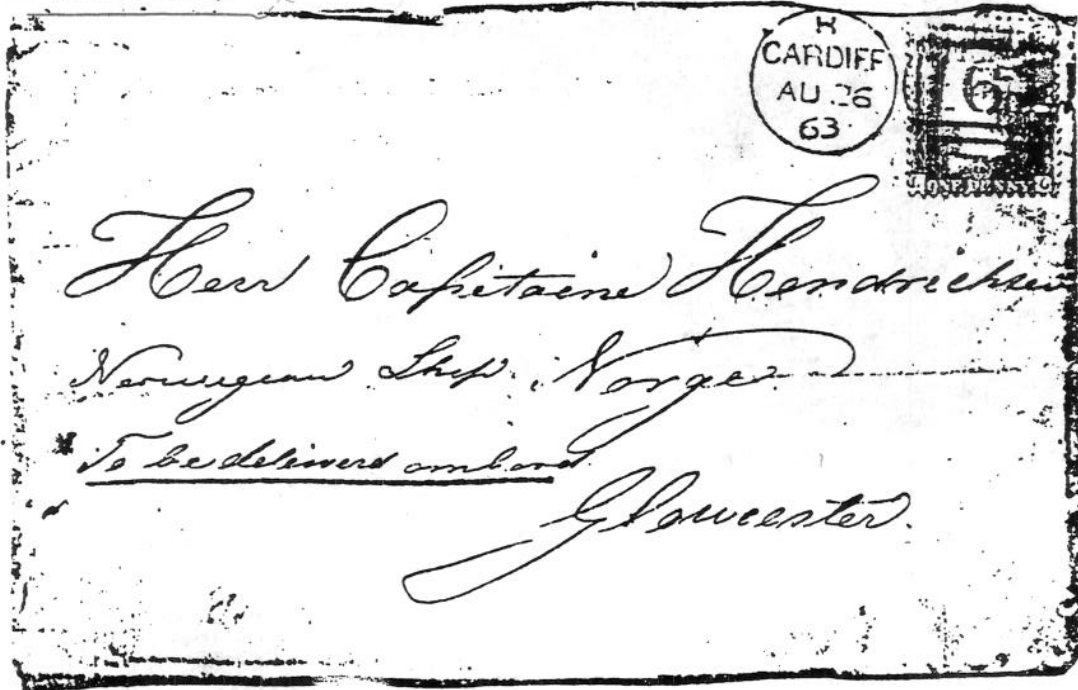 H
CARDIFF
AU 26
63
165
ONE PENNY
Herr Capitaine Hendrichsen
Norwegian Ship. Norge
To be deliverd ombord
Gloucester.